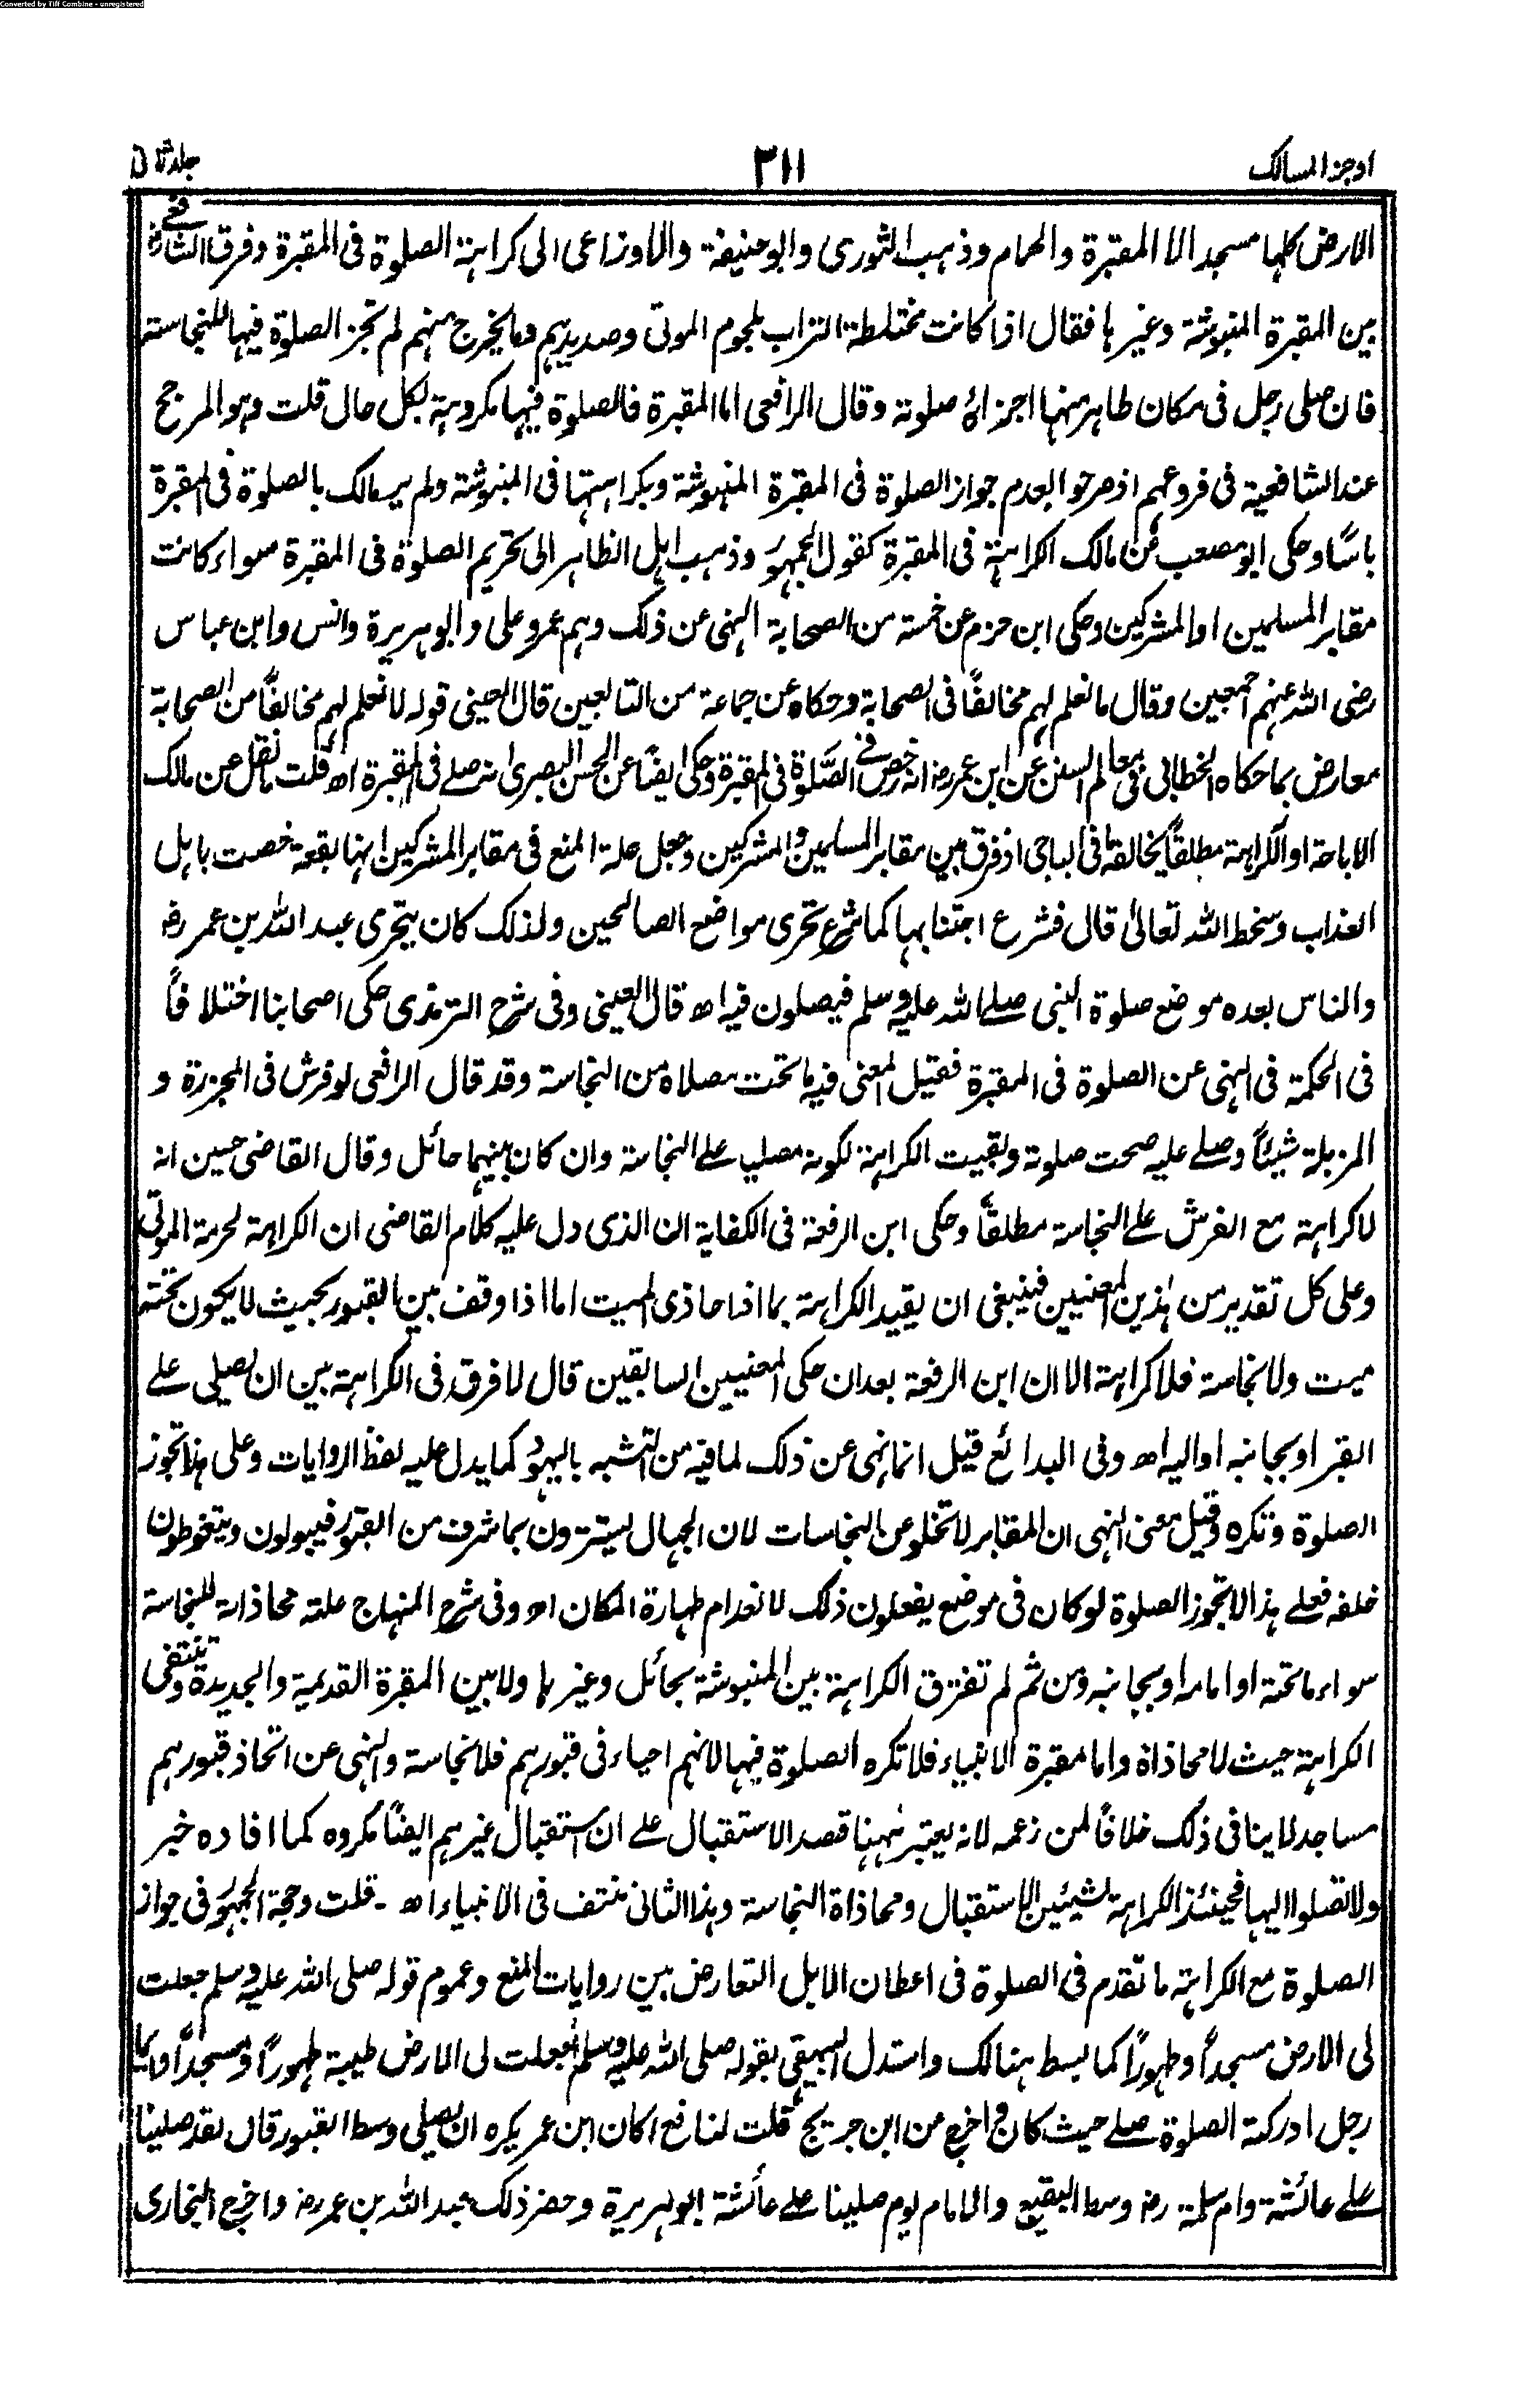 Converted by Tiff Combine - unregistered
اوجز المسالك
٣١١
جلد ثانی
الارض كلها مسجد الا المقبرة والحمام وذهب الثوری وابو حنيفة والاوزاعی الی كراهة الصلوة فی المقبرة وفرق الشافعی
بين المقبرة المنبوشة وغيرها فقال اذا كانت مختلطة التراب بلحوم الموتی وصديدهم وما يخرج منهم لم تجز الصلوة فيها للنجاسة
فان صلی رجل فی مكان طاهر منها اجزاه صلوته وقال الرافعی اما المقبرة فالصلوة فيها مكروهة بكل حال قلت وهو المرجح
عند الشافعية فی فروعهم اذ صرحوا بعدم جواز الصلوة فی المقبرة المنبوشة وبكراهتها فی المنبوشة ولم ير مالك بالصلوة فی المقبرة
باسًا وحكی ابو مصعب عن مالك الكراهة فی المقبرة كقول الجمهور وذهب اهل الظاهر الی تحريم الصلوة فی المقبرة سواء كانت
مقابر المسلمين او المشركين وحكی ابن حزم عن خمسة من الصحابة النهی عن ذلك وهم عمر وعلی وابو هريرة وانس وابن عباس
رضی الله عنهم اجمعين وقال ما نعلم لهم مخالفًا فی الصحابة وحكاه عن جماعة من التابعين قال العينی قوله لا نعلم لهم مخالفًا من الصحابة
معارض بما حكاه الخطابی فی معالم السنن عن ابن عمر رض انه رخص فی الصلوة فی المقبرة وحكی ايضًا عن الحسن البصری انه صلے فی المقبرة اھ قلت ما نقل عن مالك
الاباحة او الكراهة مطلقًا يخالفه ما فی الباجی اذ فرق بين مقابر المسلمين والمشركين وجعل علة المنع فی مقابر المشركين انها بقعة خصت باهل
العذاب وسخط الله تعالیٰ قال فشرع اجتنابها كما شرع تحری مواضع الصالحين ولذلك كان يتحری عبد الله بن عمر رض
والناس بعده موضع صلوة النبی صلے الله عليه وسلم فيصلون فيه اھ قال العينی وفی شرح الترمذی حكی اصحابنا اختلافًا
فی الحكمة فی النهی عن الصلوة فی المقبرة فقيل المعنی فيه ما تحت مصلاه من النجاسة وقد قال الرافعی لو فرش فی المجزرة و
المزبلة شيئًا وصلے عليه صحت صلوته وبقيت الكراهة لكونه مصليا علے النجاسة وان كان بينهما حائل وقال القاضی حسين انه
لا كراهة مع الفرش علے النجاسة مطلقًا وحكی ابن الرفعة فی الكفاية ان الذی دل عليه كلام القاضی ان الكراهة لحرمة الموتی
وعلی كل تقدير من هٰذين المعنيين فينبغی ان يقيد الكراهة بما اذا حاذی الميت اما اذا وقف بين القبور بحيث لا يكون تحته
ميت ولا نجاسة فلا كراهة الا ان ابن الرفعة بعد ان حكی المعنيين السابقين قال لا فرق فی الكراهة بين ان يصلی علے
القبر او بجانبه او اليه اھ وفی البدائع قيل انما نهی عن ذلك لما فيه من التشبه باليهود كما يدل عليه لفظ الروايات وعلی هذا تجوز
الصلوة وتكره وقيل معنی النهی ان المقابر لا تخلو عن النجاسات لان الجهال يستترون بما شرف من القبور فيبولون ويتغوطون
خلفه فعلے هذا لا تجوز الصلوة لو كان فی موضع يفعلون ذلك لانعدام طهارة المكان اھ وفی شرح المنهاج علته محاذاته للنجاسة
سواء ما تحته او امامه او بجانبه ومن ثم لم تفترق الكراهة بين المنبوشة بحائل وغيرها ولا بين المقبرة القديمة والجديدة وتنتفی
الكراهة حيث لا محاذاة واما مقبرة الانبياء فلا تكره الصلوة فيها لانهم احياء فی قبورهم فلا نجاسة والنهی عن اتخاذ قبورهم
مساجد لا ينافی ذلك خلافًا لمن زعمه لانه يعتبر ههنا قصد الاستقبال علے ان استقبال غيرهم ايضًا مكروه كما افاده خبر
ولا تصلوا اليها فحينئذ الكراهة لشيئين الاستقبال ومحاذاة النجاسة وهذا الثانی منتف فی الانبياء اھ ۔ قلت وحجة الجمهور فی جواز
الصلوة مع الكراهة ما تقدم فی الصلوة فی اعطان الابل التعارض بين روايات المنع وعموم قوله صلی الله عليه وسلم جعلت
لی الارض مسجدًا وطهورًا كما بسط هنالك واستدل البيهقی بقوله صلی الله عليه وسلم جعلت لی الارض طيبة طهورًا ومسجدًا وايما
رجل ادركته الصلوة صلے حيث كان واخرج من ابن جريج قلت لنافع اكان ابن عمر يكره ان يصلی وسط القبور قال لقد صلينا
علے عائشة وام سلمة رض وسط البقيع والامام يوم صلينا علے عائشة ابو هريرة وحضر ذلك عبد الله بن عمر رض واخرج البخاری